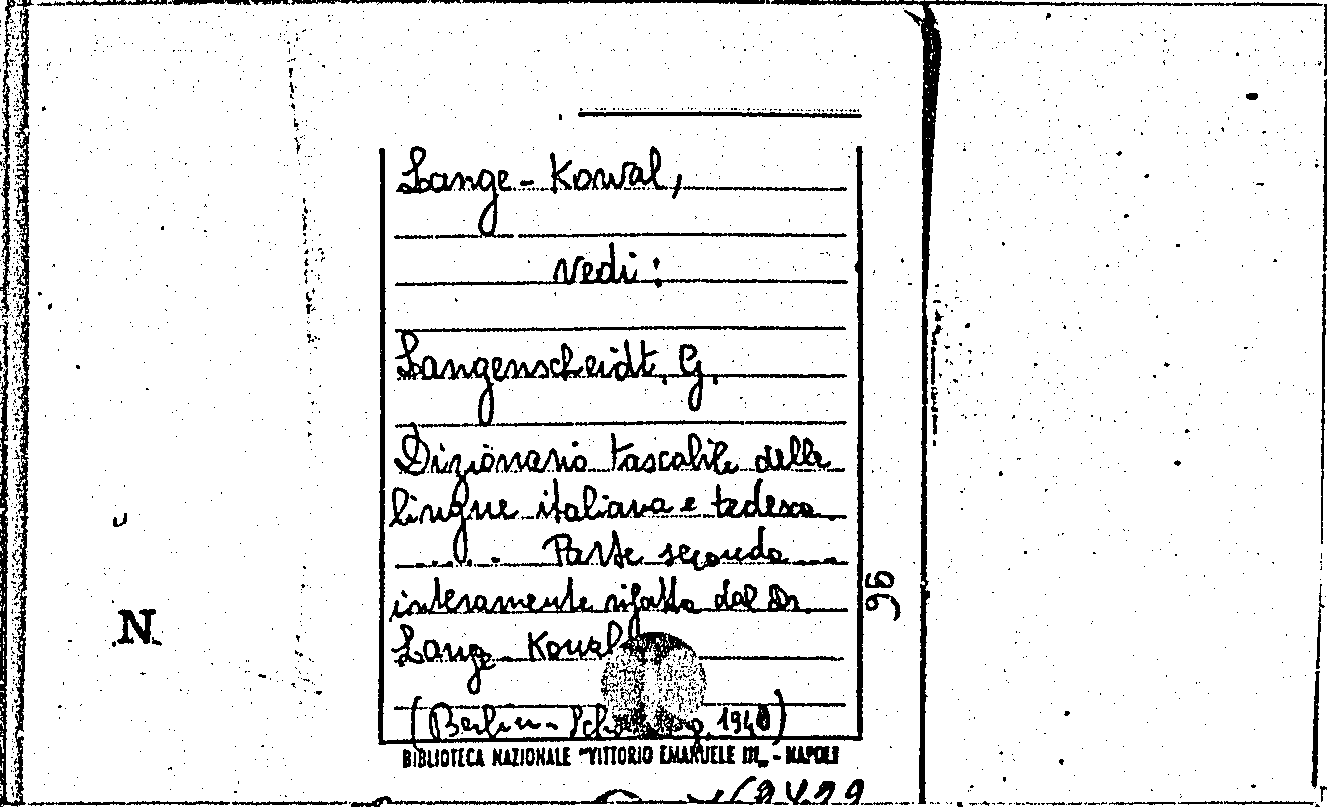 Lange - Kowal,
vedi:
Langenscheidt. G.
Dizionario tascabile delle
lingue italiana e tedesca.
...... Parte seconda ...
interamente rifatta dal Dr.
Lange Kowal
(Berlin - 1940)
BIBLIOTECA NAZIONALE "VITTORIO EMANUELE III„ - NAPOLI
96
N